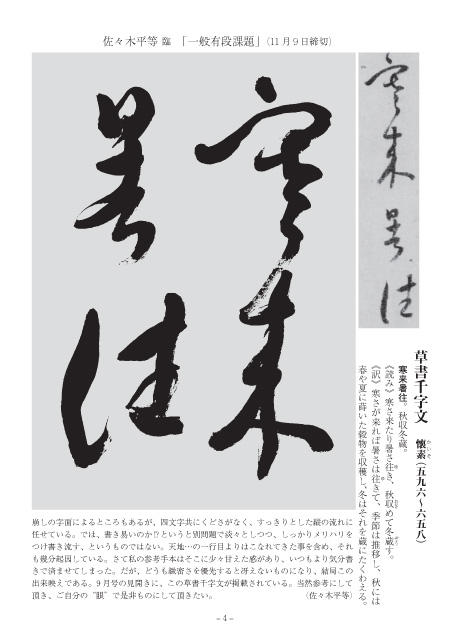 佐々木平等 臨 「一般有段課題」(11月9日締切)
寒来
暑往
寒来暑往
草書千字文 懐素(五九六~六五八)
かいそ
寒来暑往。秋収冬蔵。
《読み》寒さ来たり暑さ往き、秋収めて冬蔵す。
《訳》寒さが来れば暑さは往きて、季節は推移し、秋には
春や夏に蒔いた穀物を収穫し、冬はそれを蔵にたくわえる。
崩しの字面によるところもあるが、四文字共にくどさがなく、すっきりとした縦の流れに
任せている。では、書き易いのか?というと別問題で淡々としつつ、しっかりメリハリを
つけ書き流す、というものではない。天地…の一行目よりはこなれてきた事を含め、それ
も幾分起因している。さて私の参考手本はそこに少々甘えた感があり、いつもより気分書
きで済ませてしまった。だが、どうも緻密さを優先すると冴えないものになり、結局この
出来映えである。9月号の見開きに、この草書千字文が掲載されている。当然参考にして
頂き、ご自分の“眼”で是非ものにして頂きたい。 (佐々木平等)
- 4 -